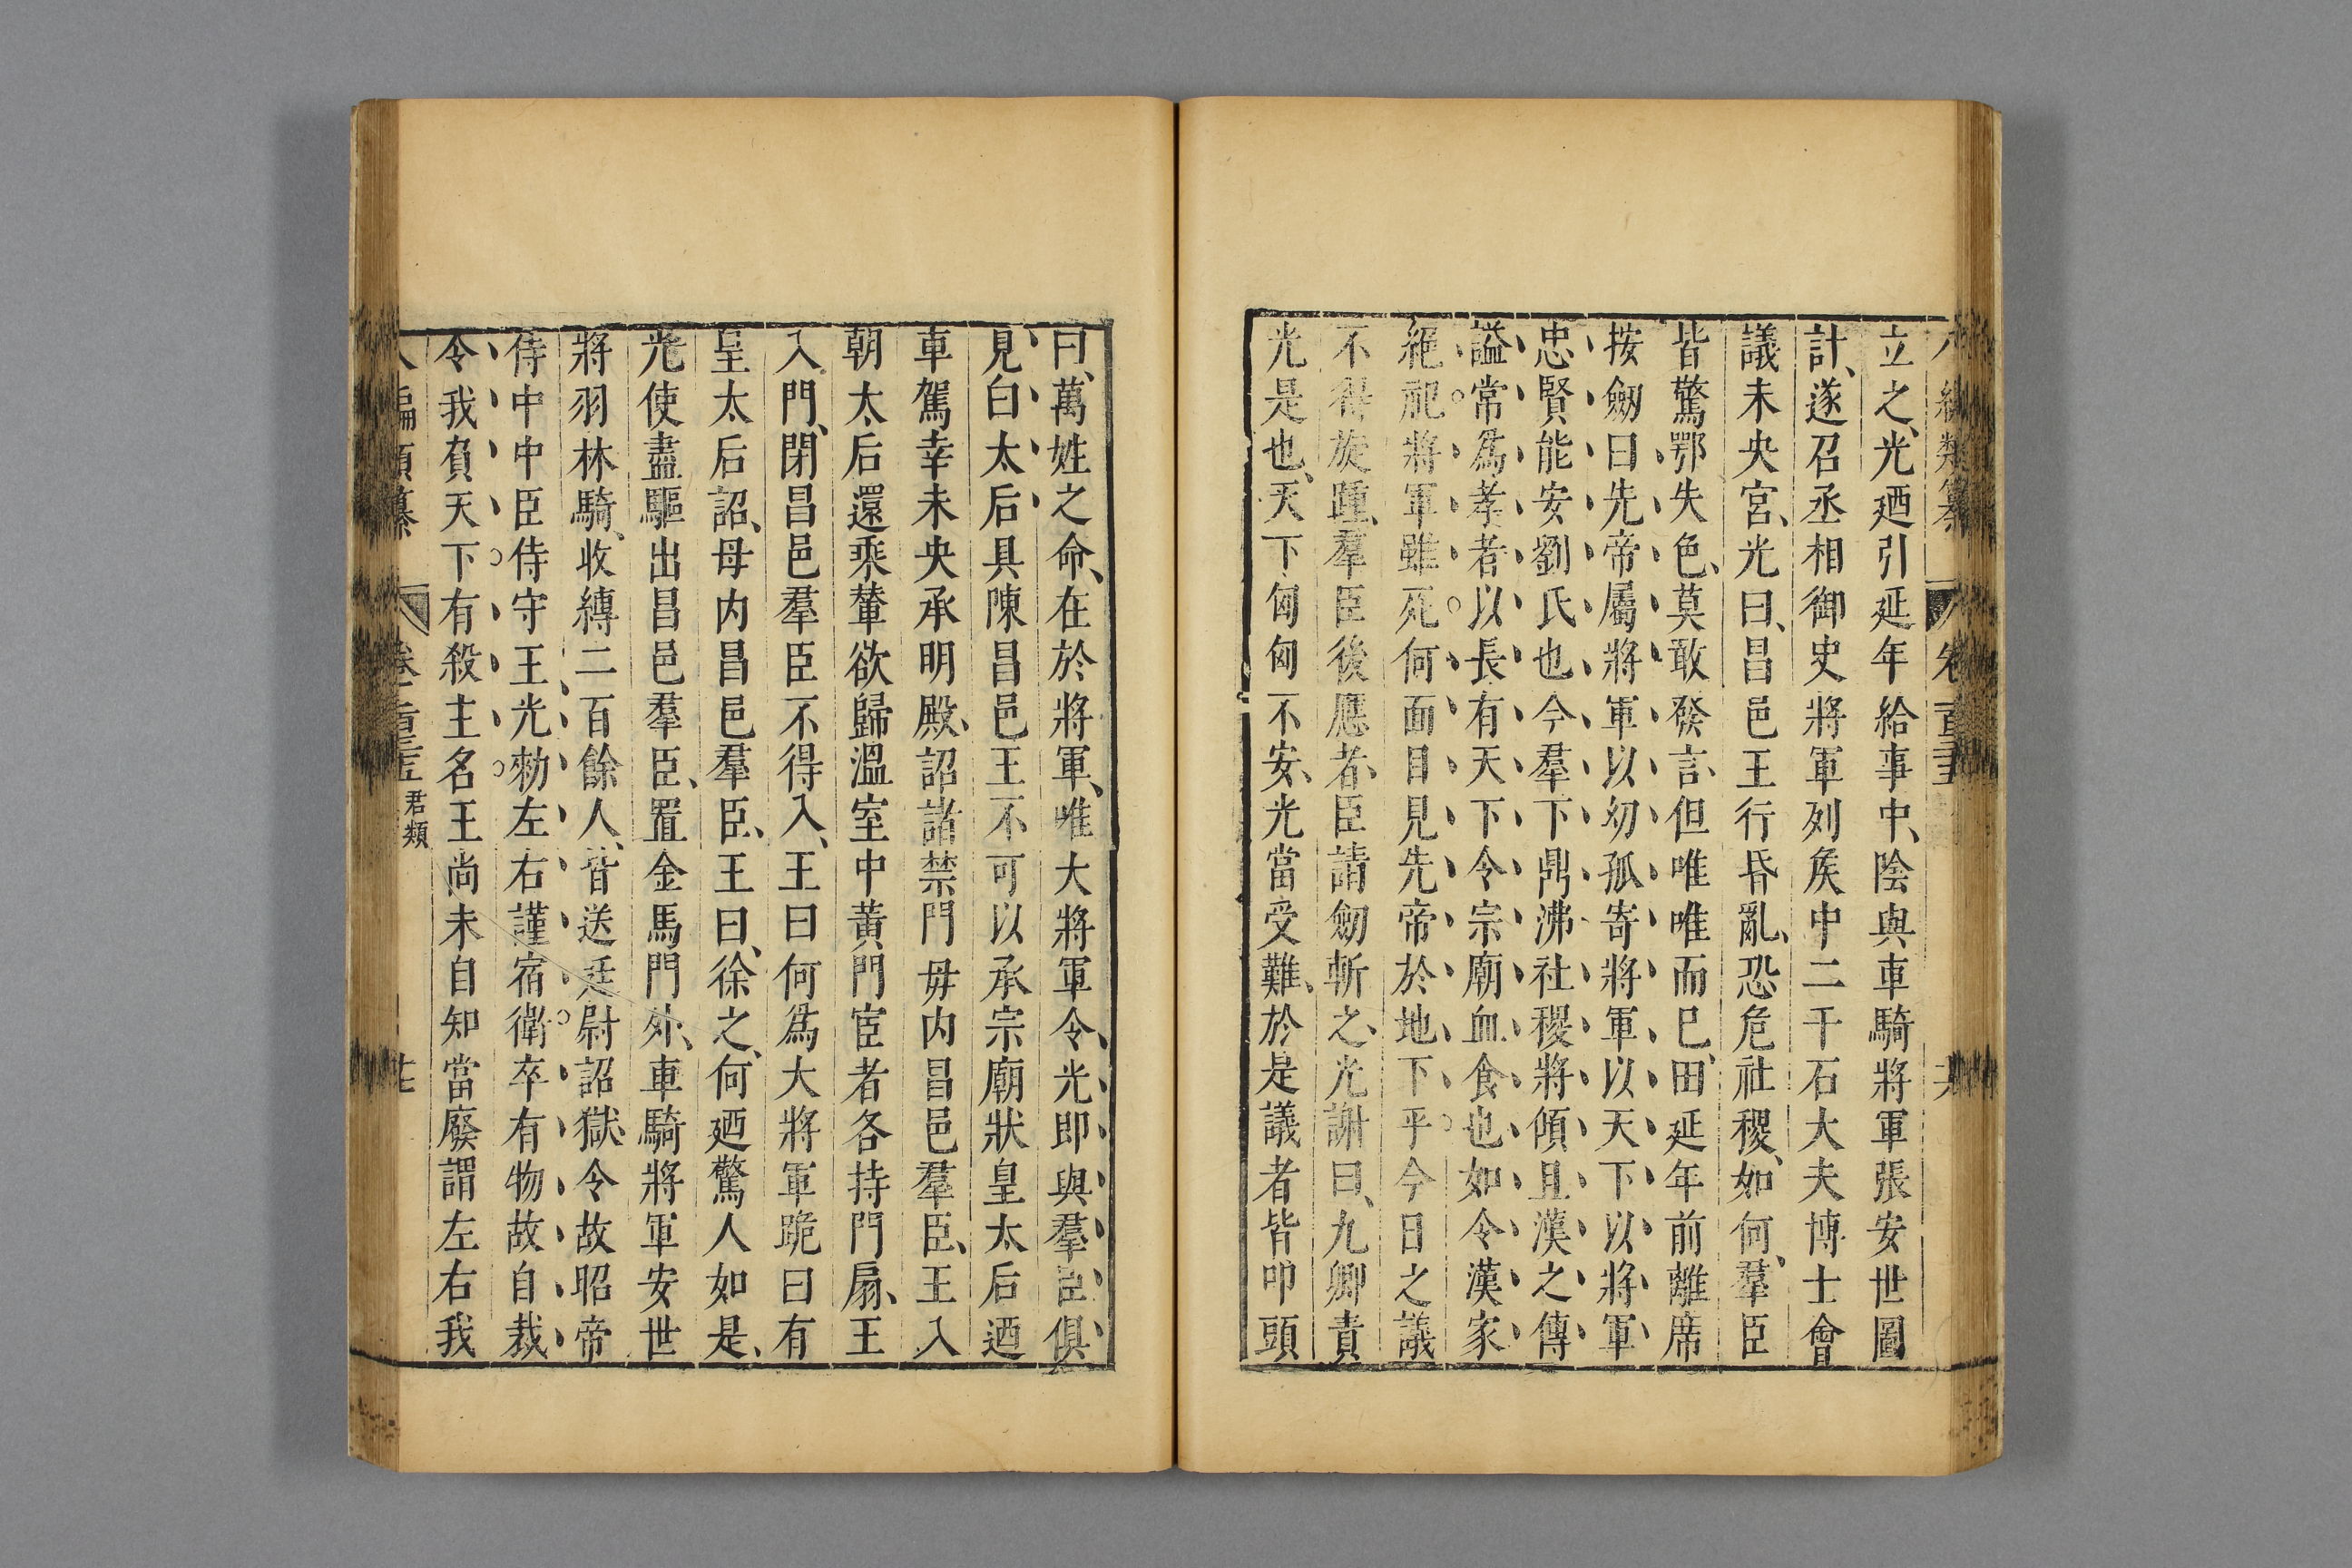 立之、光廼引延年給事中、陰與車騎將軍張安世圖
計、遂召丞相御史將軍列矦中二千石大夫博士會
議未央宮、光曰、昌邑王行昏亂、恐危社稷、如何、羣臣
皆驚鄂失色、莫敢發言、但唯唯而已、田延年前離席
按劒曰先帝屬將軍以幼孤寄將軍以天下以將軍
忠賢能安劉氏也今羣下鼎沸社稷將傾且漢之傳
謚常爲孝者以長有天下令宗廟血食也如令漢家
絕祀將軍雖死何面目見先帝於地下乎今日之議
不得旋踵、羣臣後應者、臣請劒斬之、光謝曰、九卿責
光是也、天下匈匈不安、光當受難、於是議者皆叩頭
曰、萬姓之命、在於將軍、唯大將軍令、光即與羣臣俱
見白太后具陳昌邑王不可以承宗廟狀皇太后廼
車駕幸未央承明殿、詔諸禁門毋内昌邑羣臣、王入
朝太后還乘輦欲歸溫室中黃門宦者各持門扇、王
入門、閉昌邑羣臣不得入、王曰何爲大將軍跪曰有
皇太后詔、母内昌邑羣臣、王曰、徐之、何廼驚人如是、
光使盡驅出昌邑羣臣、置金馬門外、車騎將軍安世
將羽林騎、收縛二百餘人、皆送廷尉詔獄、令故昭帝
侍中中臣侍守王光勑左右謹宿衛卒有物故自裁
令我負天下有殺主名王尚未自知當廢謂左右我
君類